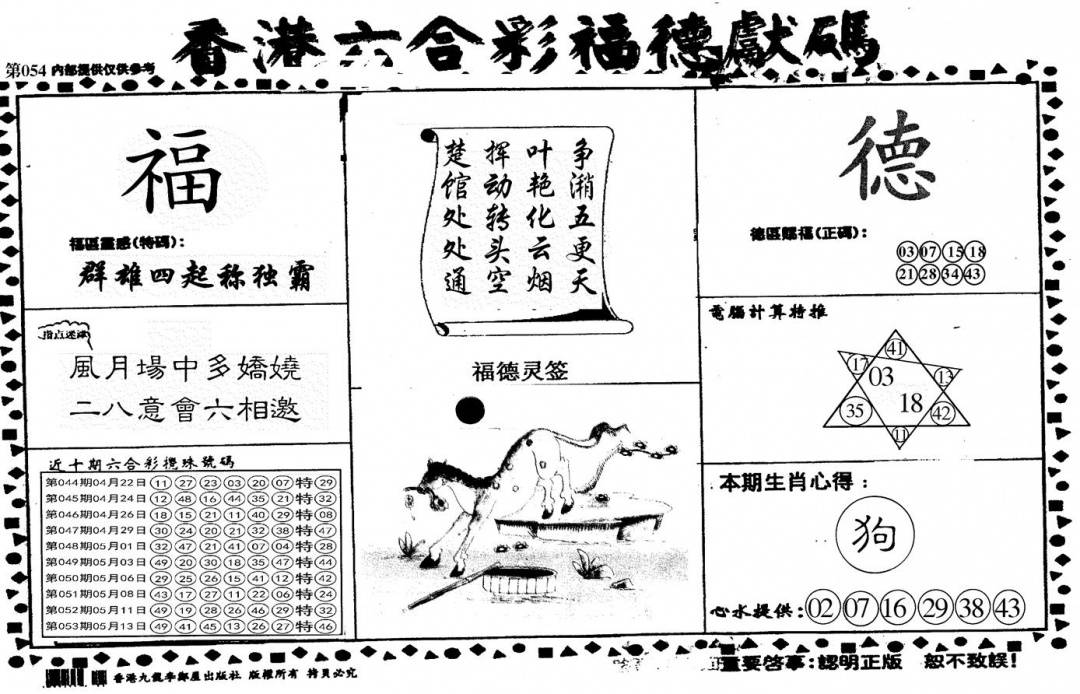 香港六合彩福德獻碼
第054 内部提供仅供参考
福
福區靈感(特碼):
群雄四起称独霸
指点迷津
風月場中多嬌嬈
二八意會六相邀
近十期六合彩攪珠號碼
第044期04月22日 11 27 23 03 20 07 特 29
第045期04月24日 12 48 16 44 35 21 特 32
第046期04月26日 18 15 21 11 40 29 特 08
第047期04月29日 30 24 20 21 32 38 特 47
第048期05月01日 32 47 21 41 07 04 特 28
第049期05月03日 49 20 30 18 35 47 特 44
第050期05月06日 29 25 26 15 41 12 特 42
第051期05月08日 43 17 27 11 22 06 特 24
第052期05月11日 49 19 28 26 46 29 特 32
第053期05月13日 49 41 45 13 26 27 特 46
争潲五更天
叶艳化云烟
挥动转头空
楚馆处处通
福德灵签
德
德區賜福(正碼):
03 07 15 18
21 28 34 43
電腦計算特推
41
17 03 13
35 18 42
11
本期生肖心得:
狗
心水提供: 02 07 16 29 38 43
香港九龍李鄭屋出版社 版權所有 拷貝必究
重要啓事:認明正版 恕不致誤!